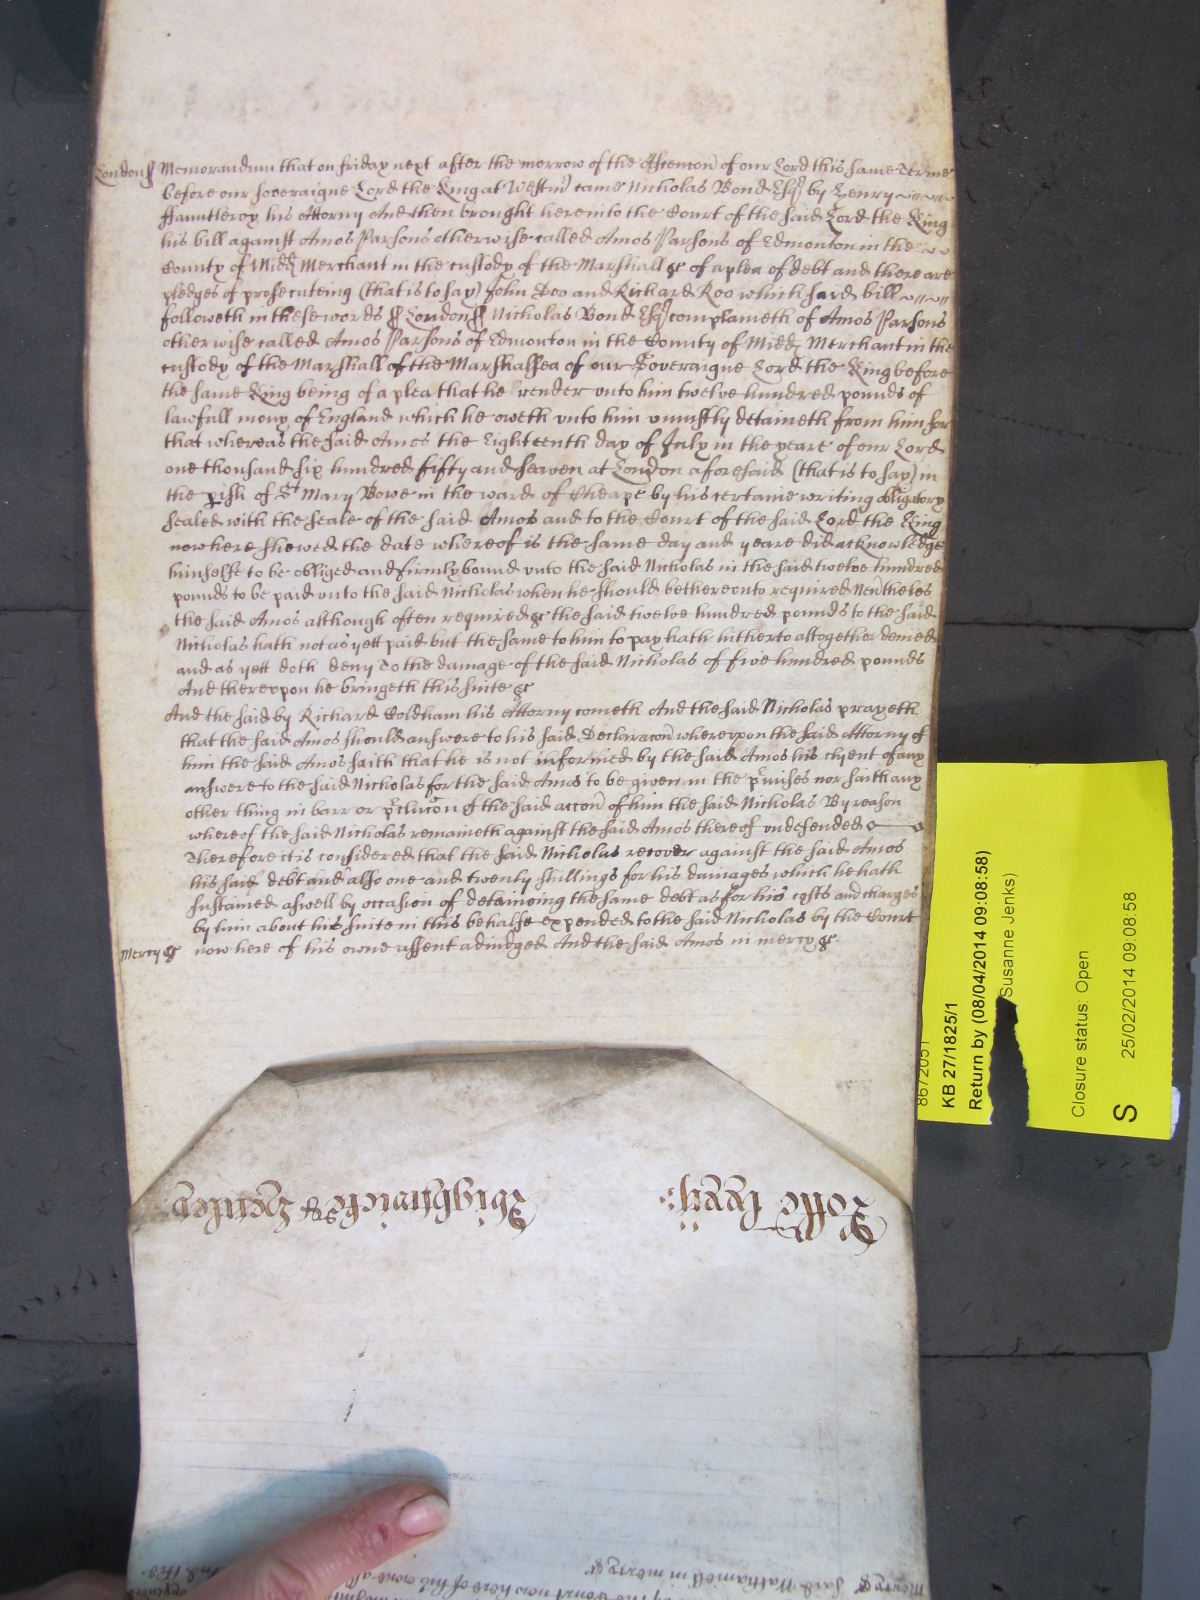 London ss Memorandum that on friday next after the morrow of the Ascencon of our Lord this same Terme
before our soveraigne Lord the King at Westm came Nicholas Bond Esqr by Henry
ffauntleroy his Attorny And then brought here into the Court of the said Lord the King
his bill against Amos Parsons otherwise called Amos Parsons of Edmonton in the
County of Midd Merchant in the custody of the Marshall &c of a plea of debt and there are
pledges of prosecuteing (that is to say) John Doo and Richard Roo which said bill
followeth in these words ss London ss Nicholas Bond Esqr complaineth of Amos Parsons
otherwise called Amos Parsons of Edmonton in the County of Midd Merchant in the
custody of the Marshall of the Marshalsea of our Soveraigne Lord the King before
the same King being of a plea that he render unto him twelve hundred pounds of
lawfull mony of England which he oweth unto him uniustly detaineth from him for
that whereas the said Amos the Eighteenth day of July in the yeare of our Lord
one thousand six hundred fifty and seaven at London aforesaid (that is to say) in
the pish of St Mary Bowe in the ward of Cheape by his certaine writing obligatory
sealed with the seale of the said Amos and to the Court of the said Lord the King
now here shewed the date whereof is the same day and yeare did acknowledge
himselfe to be obliged and firmly bound unto the said Nicholas in the said twelve hundred
pounds to be paid unto the said Nicholas when he should be thereonto required Nevtheles
the said Amos although often required &c the said twelve hundred pounds to the said
Nicholas hath not as yett paid but the same to him to pay hath hitherto altogether denied
and as yett doth deny To the damage of the said Nicholas of five hundred pounds
And thereupon he bringeth this suite &c
And the said by Richard Coldham his Attorny cometh And the said Nicholas prayeth
that the said Amos should answere to his said Declaracon whereupon the said Attorny of
him the said Amos saith that he is not informed by the said Amos his clyent of any
answere to the said Nicholas for the said Amos to be given in the pmises nor saith any
other thing in barr or pclucon of the said accon of him the said Nicholas By reason
whereof the said Nicholas remaineth against the said Amos thereof undefended
Therefore it is considered that the said Nicholas recover against the said Amos
his said debt and also one and twenty shillings for his damages which he hath
sustained aswell by occasion of detaineing the same debt as for his costs and charges
by him about his suite in this behalfe expended to the said Nicholas by the Court
Mercy &c now here of his owne assent adiudged And the said Amos in mercy &c.
KB 27/1825/1
Return by (08/04/2014 09:08:58)
Susanne Jenks)
Closure status: Open
S
25/02/2014 09:08:58
Rotlo lxxij
Wightwicke & Henley
Mercy &c said Nathaniell in mercy &c
by the Court now here of his owne